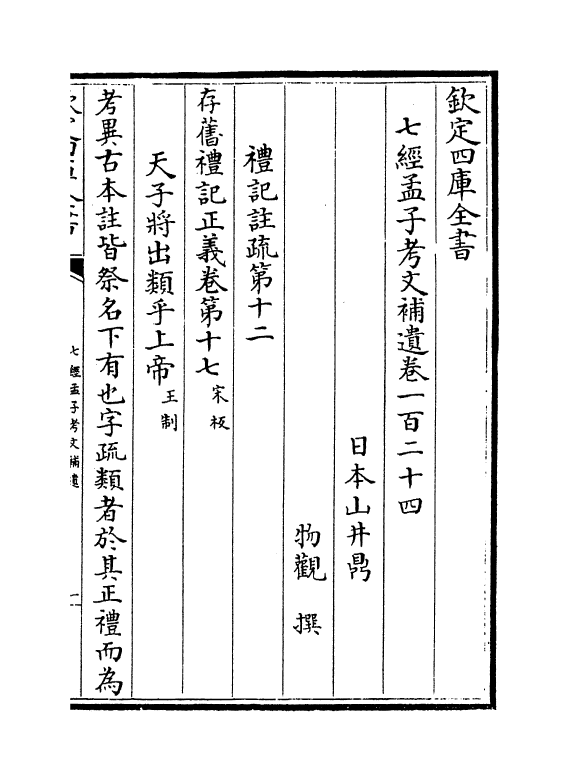 欽定四庫全書
七經孟子考文補遺卷一百二十四
日本山井鼎
物觀 撰
禮記註疏第十二
存舊禮記正義卷第十七宋板
天子將出類乎上帝王制
考異古本註皆祭名下有也字疏類者於其正禮而為
七經孟子考文補遺
一